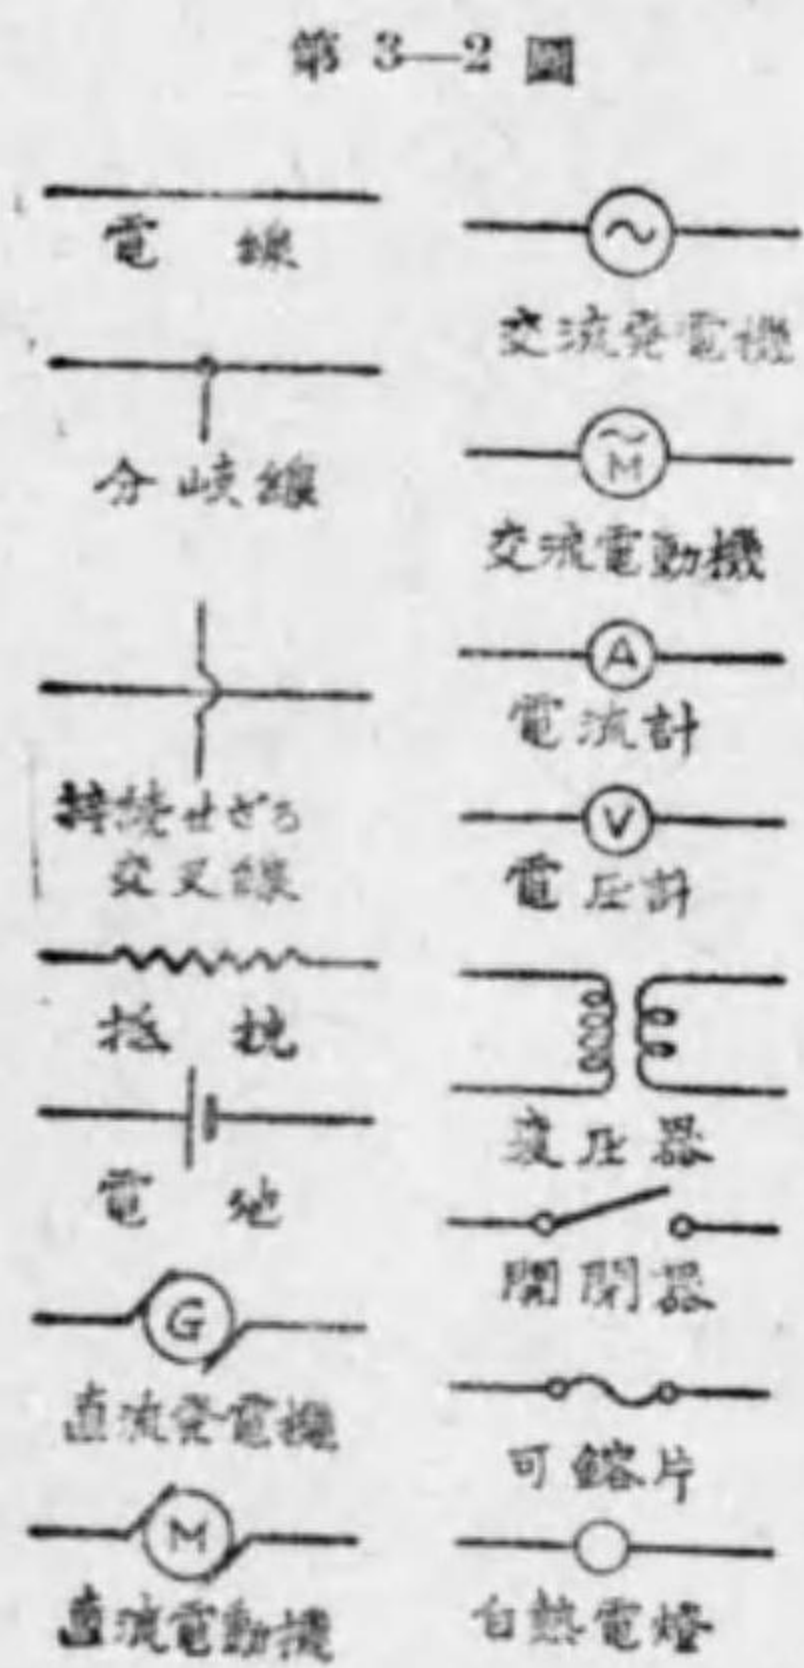 第 3—2 圖
電 線
分岐線
接続せざる
交叉線
抵 抗
電 池
G
直流発電機
M
直流電動機
交流発電機
M
交流電動機
A
電流計
V
電圧計
変圧器
開閉器
可鎔片
白熱電燈